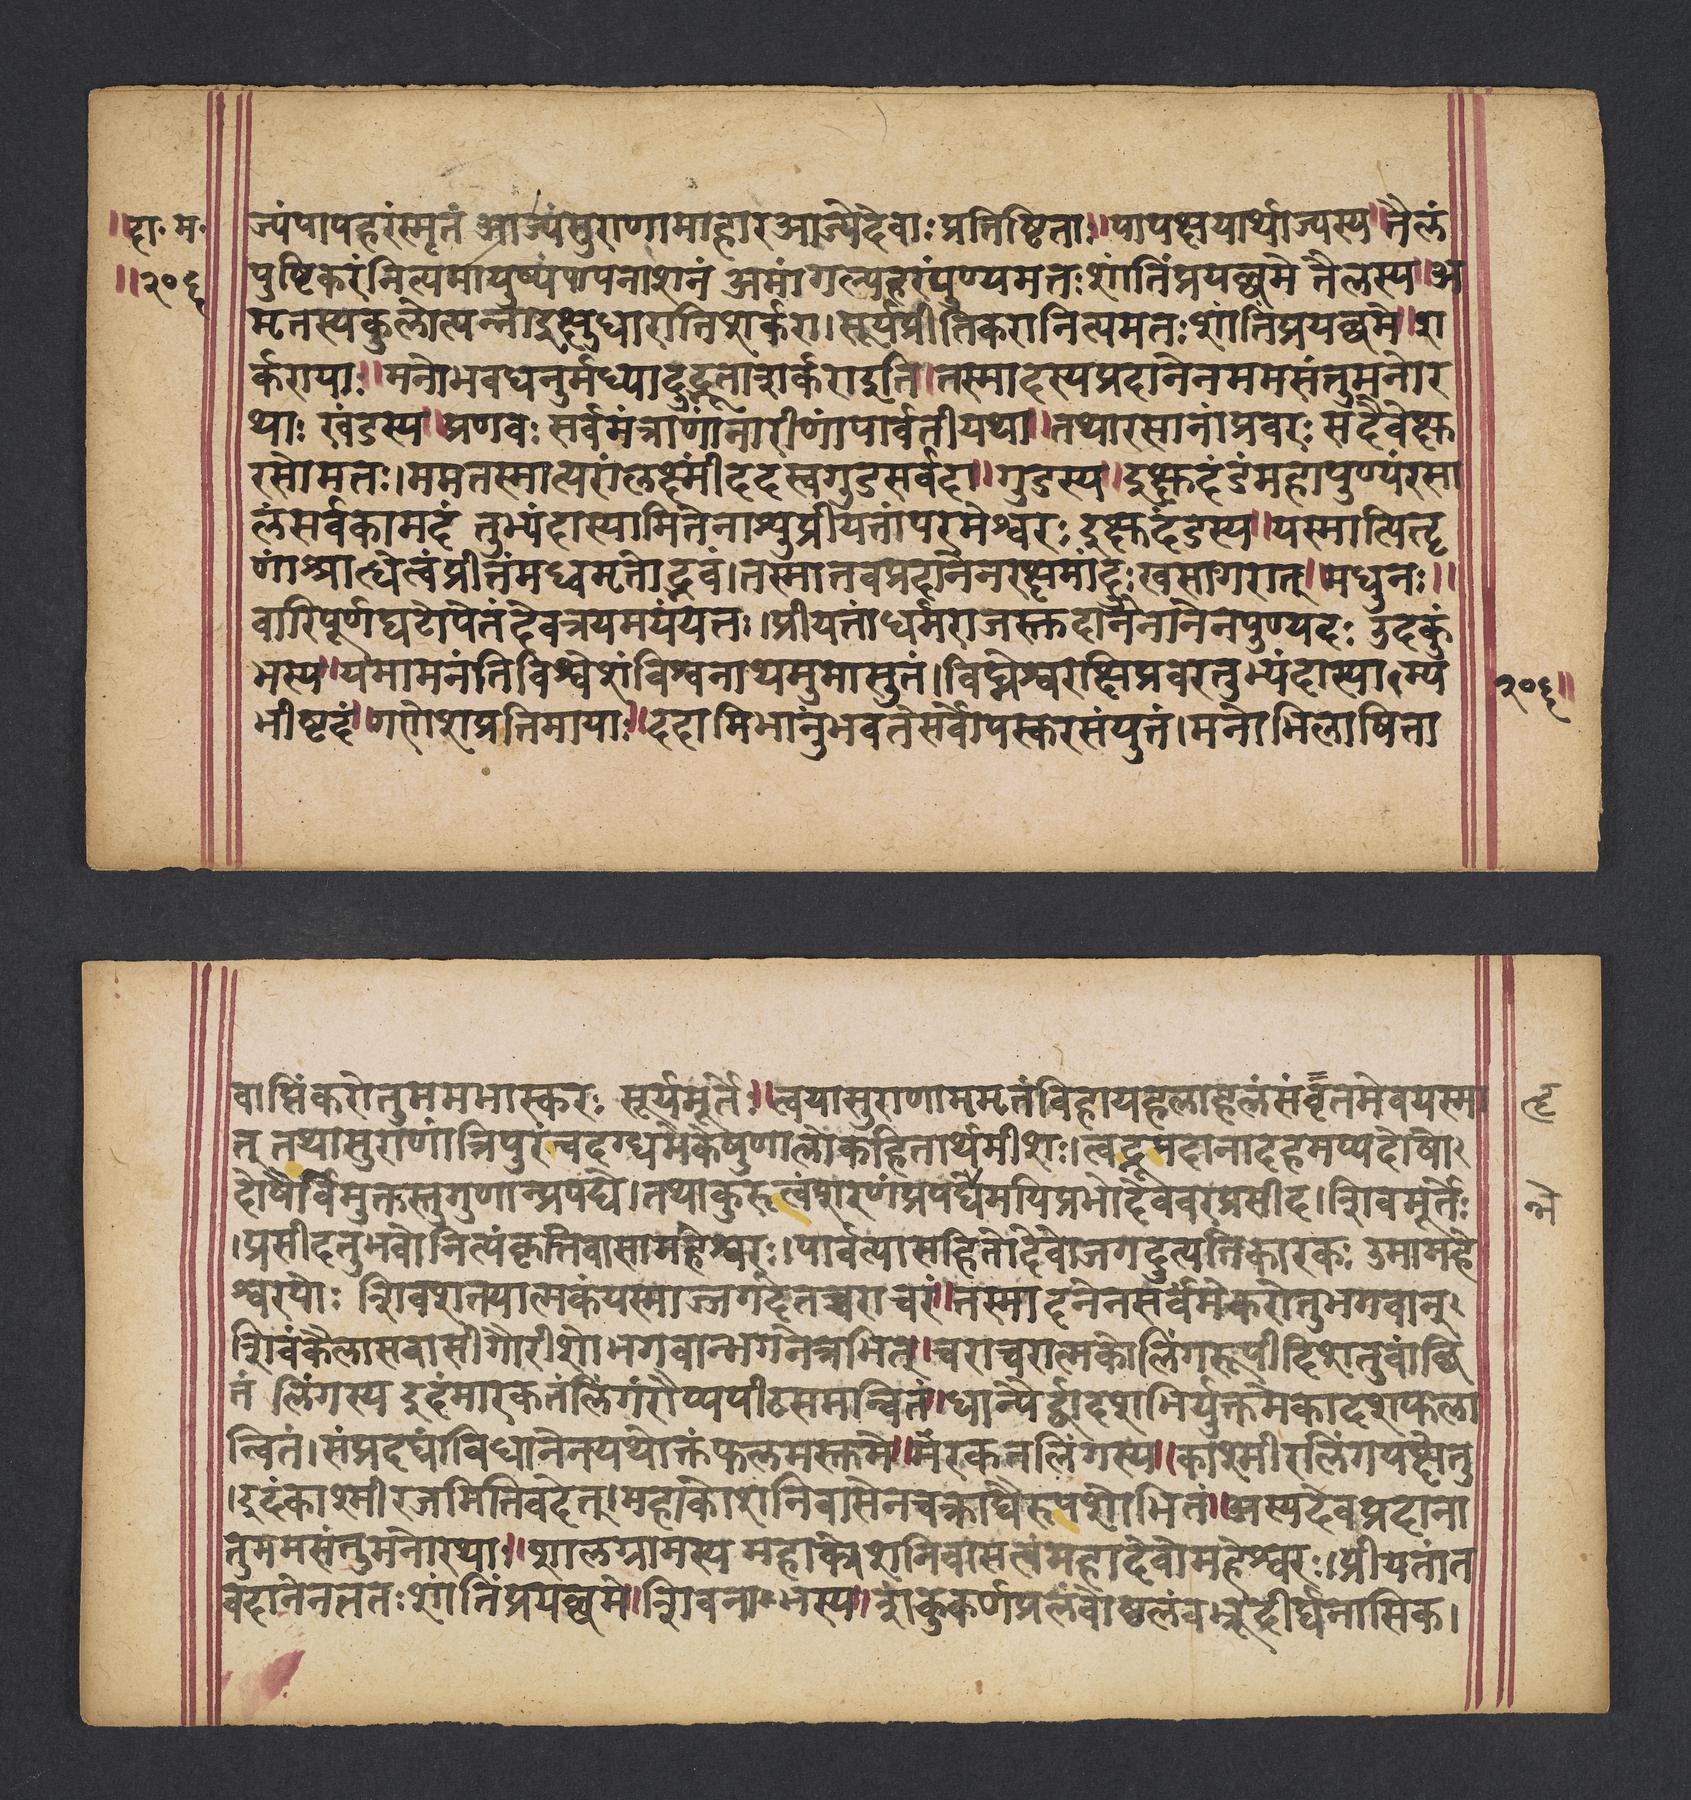 ॥दा॰ म॰
॥२०६
ज्यंपापहरंस्मृतं आज्यंसुराणामाहारआज्येदेवाःप्रतिष्टिताः॥पापक्षयार्थाज्यस्य॥तैलं
पुष्टिकरंनित्यमायुष्यंपापनाशनं अमांगल्यहरंपुण्यमतःशांतिंप्रयछमे तैलस्य॥अ
मृतस्यकुलोत्पन्नाइक्षुधारातिशर्करा।सूर्यप्रीतिकरानित्यमतःशांतिंप्रयछमे॥श
र्करायाः॥मनोभवधनुर्मध्यादुद्भूताशर्कराइति॥तस्मादस्यप्रदानेनममसंतुमनोर
थाः खंडस्य॥प्रणवः सर्वमंत्राणांनारीणांपार्वतीयथा॥तथारसानांप्रवरः सदैवेक्षु
रसोमतः।ममतस्मात्परांलक्ष्मींददस्वगुडसर्वदा॥गुडस्य॥इक्षुदंडंमहापुण्यंरसा
लंसर्वकामदं तुभ्यंदास्यामितेनाश्युप्रीयतांपरमेश्वरः इक्षुदंडस्य॥यस्मात्पितॄ
णांश्राद्धेत्वंप्रीतंमध्वमृतोद्भवं।तस्मात्तवप्रदानेनरक्षमांदुःखसागरात्॥मधुनः॥
वारिपूर्णघटोपेतंदेवत्रयमयंयतः।प्रीयतांधर्मराजस्तुदानेनानेनपुण्यदः उदकुं
भस्य॥यमामनंतिविश्वेशंविश्वनाथमुमासुतं।विघ्नेश्वरोक्षिप्रवरतुभ्यंदास्याम्य
भीष्टदं॥गणेशप्रतिमायाः॥ददामिभानुंभवतेसर्वोपस्करसंयुतं।मनोभिलाषिता
२०६॥
वाप्तिंकरोतुममभास्करः सूर्यमूर्तेः॥त्वयासुराणाममृतंविहायहलाहलंसंवृतमेवयस्मा
त् तथासुराणांत्रिपुरंचदग्धमेकेषुणालोकहितार्थमीशः।त्वद्रूपदानादहमप्यदोषो
दोषैर्विमुक्तस्तुगुणान्प्रपद्ये।तथाकुरुत्वंशरणंप्रपद्येमयिप्रभोदेववरप्रसीद।शिवमूर्तेः
।प्रसीदतुभवोनित्यंकृत्तिवासामहेश्वरः।पार्वत्यासहितोदेवोजगदुत्पत्तिकारकः उमामहे
श्वरयोः शिवशक्त्यात्मकंयस्माज्जगदेतच्चराचरं॥तस्मादनेनसर्वंमेकरोतुभगवान्
शिवंकैलासवासीगौरीशोभगवान्भगनेत्रभित्॥चराचरात्मकोलिंगरूपीदिशतुवांछि
तं लिंगस्य इदंमारकतंलिंगंरौप्यपीठसमन्वितं॥धान्यैर्द्वादशभिर्युक्तमेकादशफला
न्वितं।संप्रदद्यांविधानेनयथोक्तंफलमस्तुमे॥मरकतलिंगस्य॥काश्मीरलिंगपक्षेतु
।इदंकाश्मीरजमितिवदेत्।महाकोशनिवासेनचक्राद्यैरूपशोभितं॥अस्यदेवप्रदाना
त्तुममसंतुमनोरथाः॥शालग्रामस्य महाकोशनिवासत्वंमहादेवोमहेश्वरः।प्रीयतांत
वदानेनततःशांतिंप्रयछमे॥शिवनाभस्य॥शंकुकर्णप्रलंबोष्ठलंबभ्रूदीर्घनासिक।